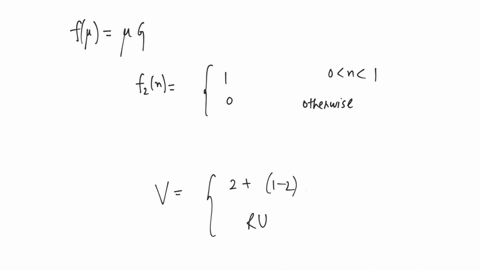 f(μ) = μ G
f₂(n) = { 1 0<n<1
0 otherwise
V = { 2 + (1-2)
RU